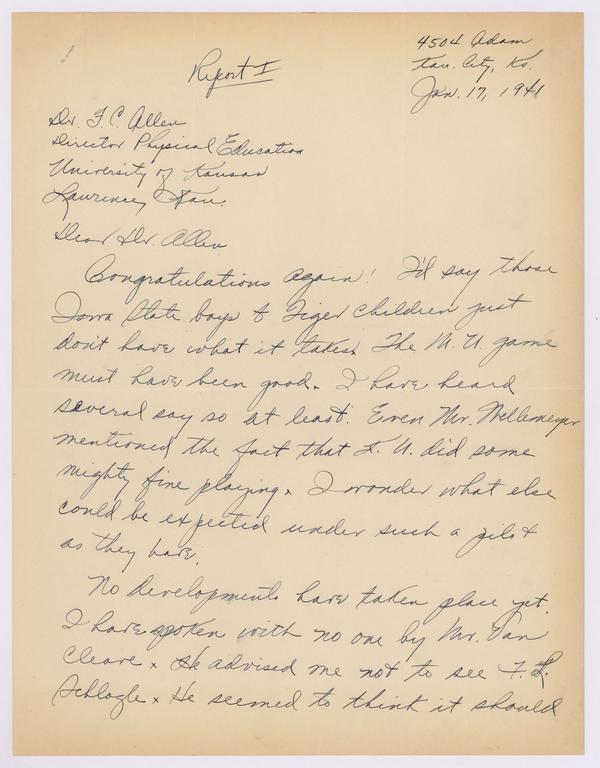 Report I
4504 Adam
Kan. City, Ks.
Jan. 17, 1941
Dr. F. C. Allen
Director Physical Education
University of Kansas
Lawrence, Kan.
Dear Dr. Allen
Congratulations again! I'd say those
Iowa State boys & Tiger children just
don't have what it takes. The M. U. game
must have been good. I have heard
several say so at least. Even Mr. Wellemeyer
mentioned the fact that K. U. did some
mighty fine playing. I wonder what else
could be expected under such a pilot
as they have.
No developments have taken place yet.
I have spoken with no one by Mr. Van
Cleave. He advised me not to see F. L.
Schlagle. He seemed to think it should